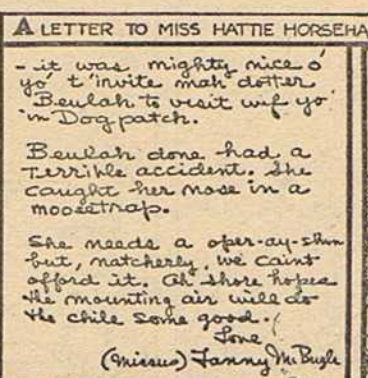 A LETTER TO MISS HATTIE HORSEHA
- it was mighty nice o'
yo' t'invite mah dotter
Beulah to visit wif yo'
in Dogpatch.
Beulah done had a
terrible accident. She
caught her nose in a
moosetrap.
She needs a oper-ay-shun
but, natcherly, we cain't
afford it. Ah shore hopes
the mounting air will do
the chile some good.
Love
(Missus) Fanny McBugle